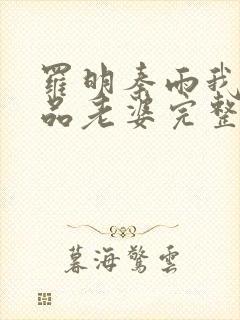 羅明秦雨我
品老婆完整
暮海驚雲